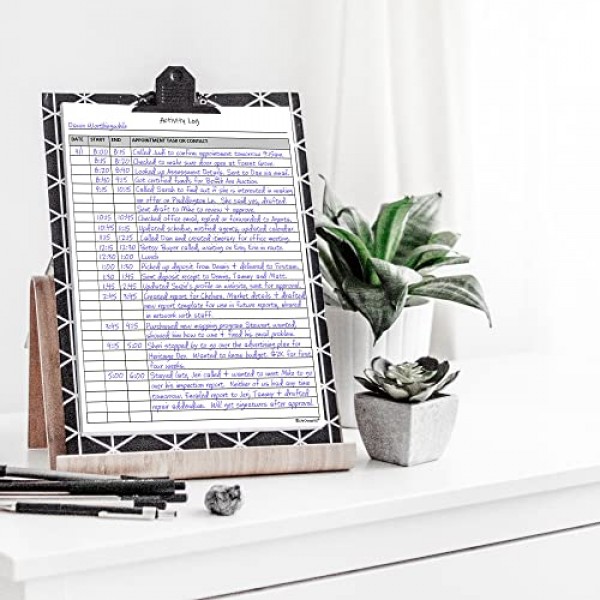 Activity Log
DATE START END APPOINTMENT TASK OR CONTACT
8:00 8:15 Called Judi to confirm appointment tomorrow 9:15am.
8:15 8:20 Checked to make sure door open at Forest Grove.
8:20 8:40 Looked up Assessment Details. Sent to Dan via email.
8:40 9:15 Got certified funds for Bank Auction
9:15 10:15 Called Sarah to find out if she is interested in making
an offer on Paddington Ln. She said yes, drafted.
Sent draft to Mike to review + approve.
10:15 10:45 Checked office email, replied or forwarded to Agents.
10:45 Updated schedule, notified agents, updated calendar.
12:15 Called Dan and created itinerary for office meeting.
12:15 12:30 Betty Buyer called, waiting on tiny
12:30 1:00 Lunch
1:00 1:30 Picked up deposit from Dennis + delivered to
1:30 1:45 Sent deposit receipt to Dennis, Tammy and Matt.
1:45 2:45 Updated Suzie's profile on website, sent for approval.
2:45 3:45 Created report for Chelsea. Market details + drafted
new report template for use in future reports, shared
in network with staff.
3:45 4:15 Purchased new mapping program Stewart wanted,
showed him how to use it + fixed his email problem.
4:15 5:00 Sheri stopped by to go over the advertising plan for
Heritage Dev. Wanted to know budget. $2K for first
four weeks.
5:00 6:00 Stayed late, Jeri called + wanted to meet Mike to go
over his inspection report. Neither of us had any time
tomorrow. Emailed report to Jeri, Tammy + drafted
repair addendum. Will get signatures after approval.